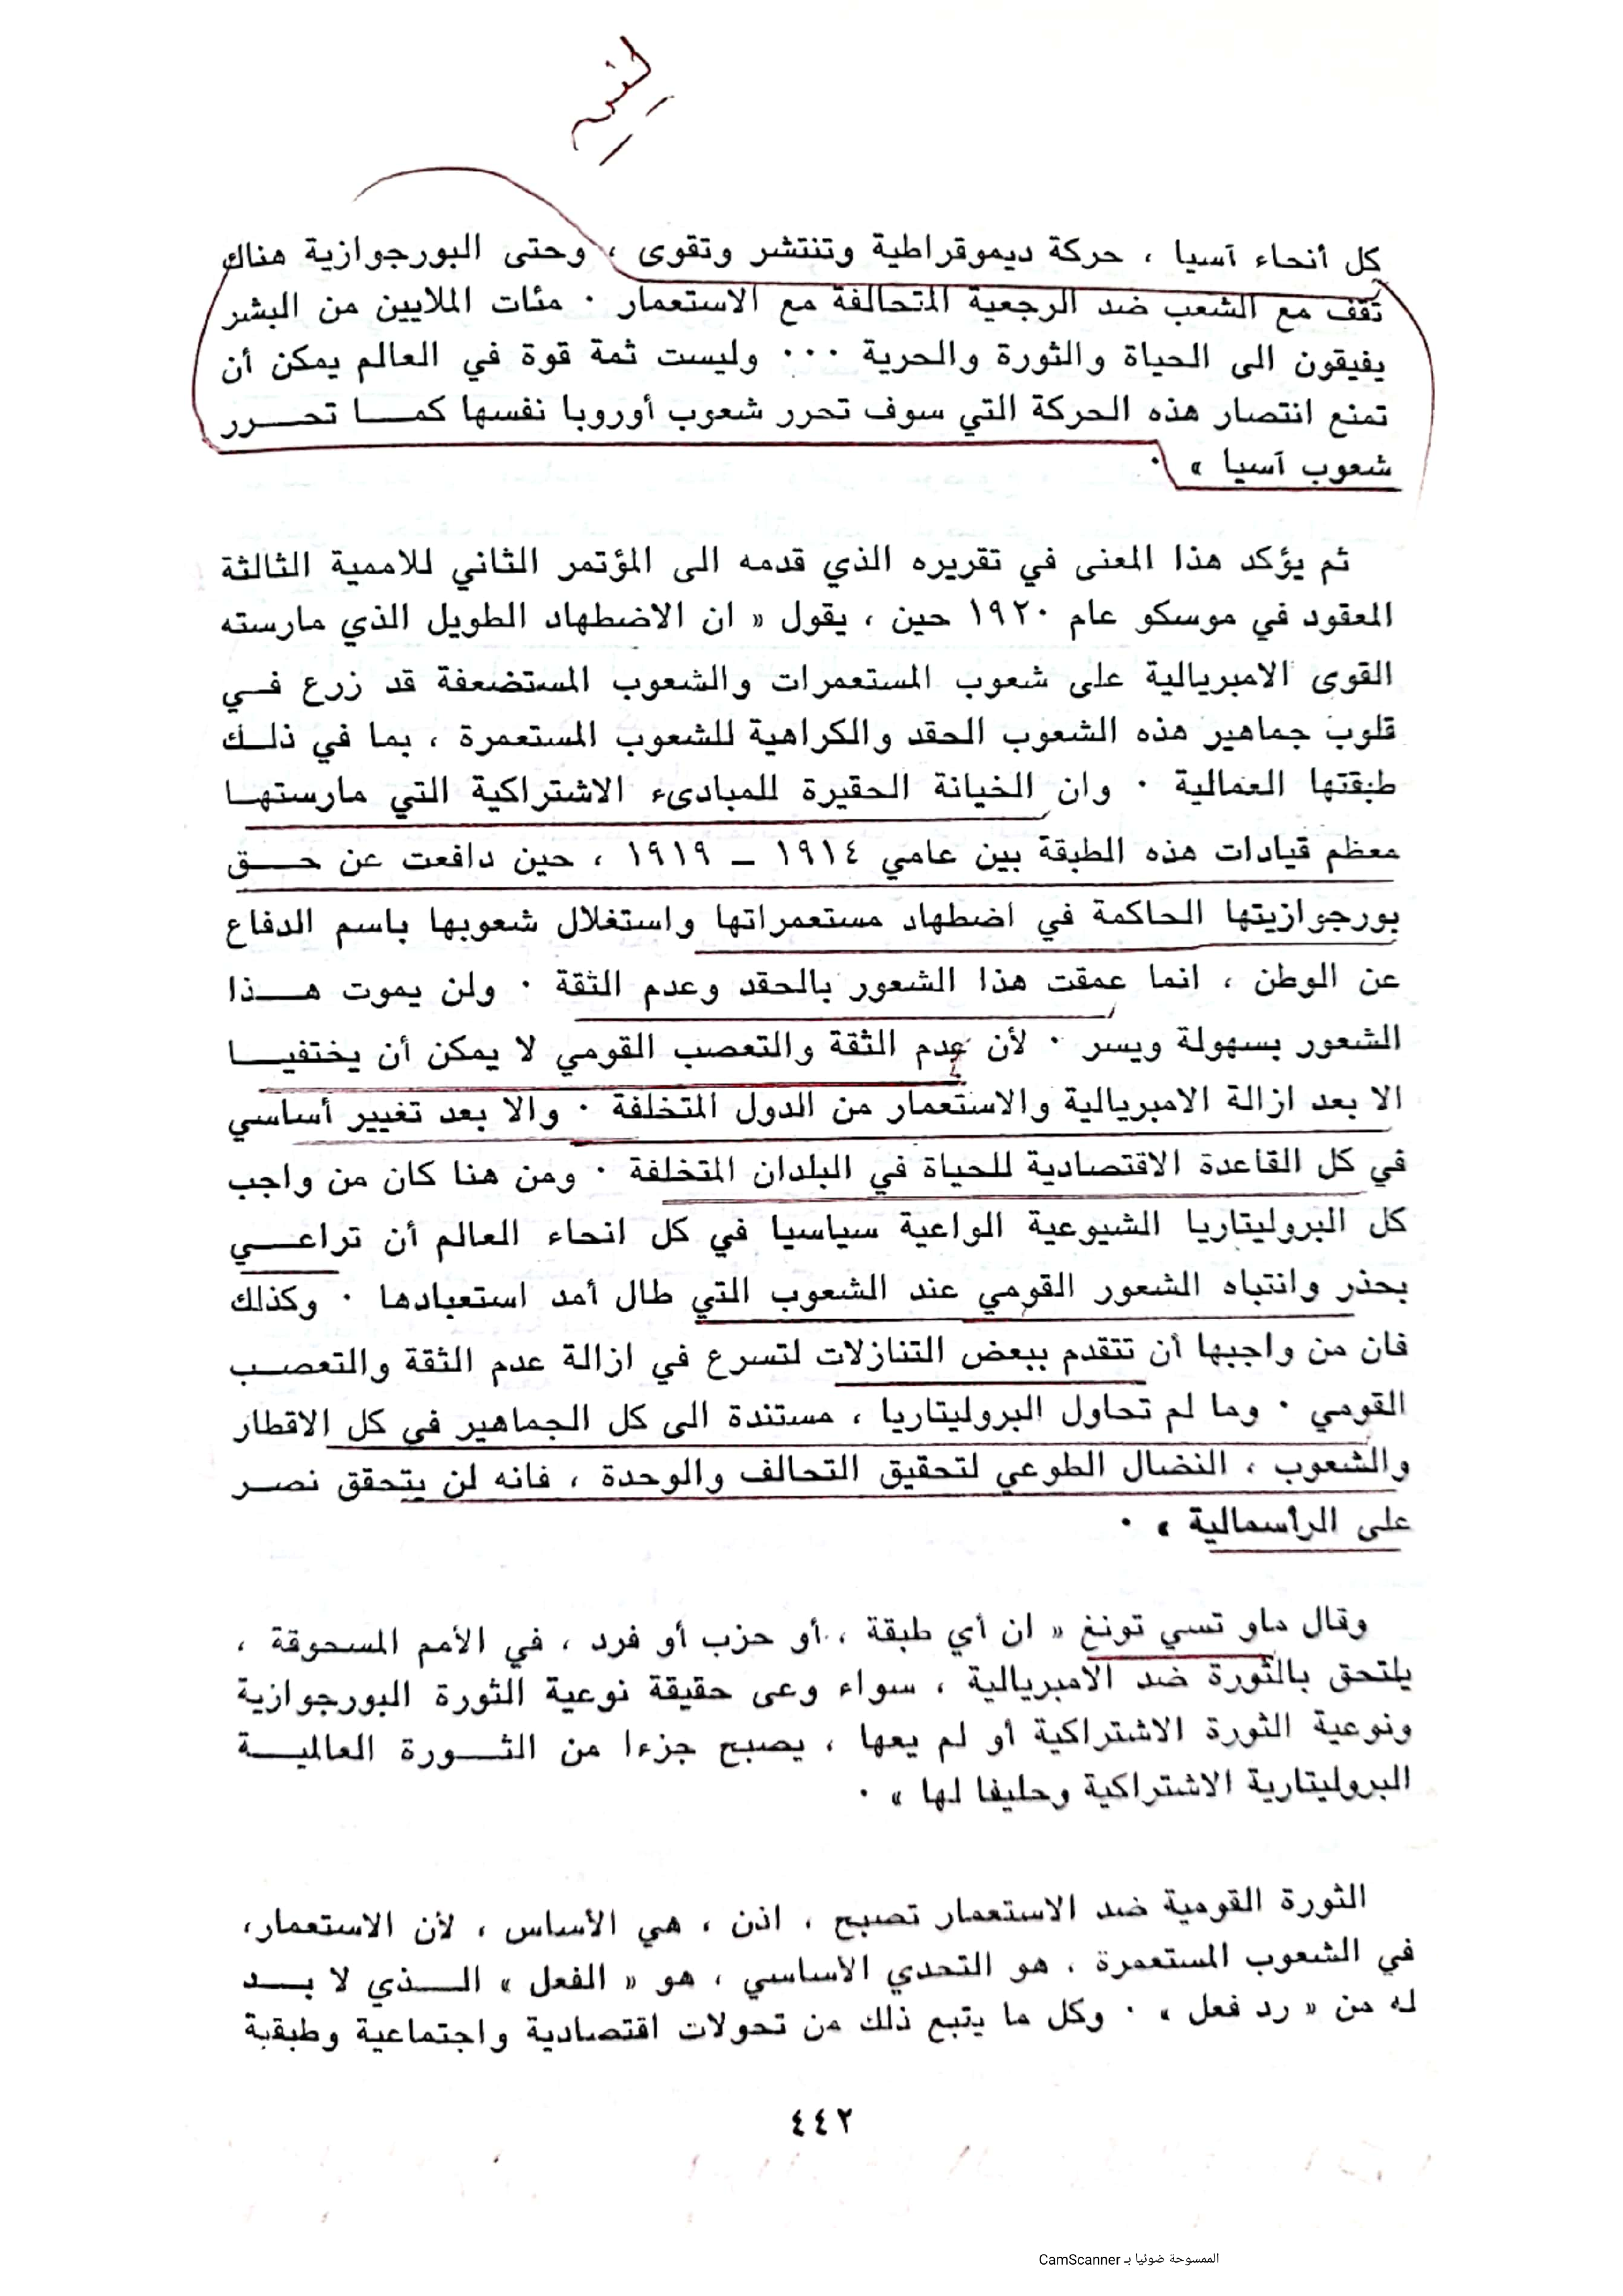 كل أنحاء آسيا ، حركة ديموقراطية وتنتشر وتقوى ، وحتى البورجوازية هناك
تقف مع الشعب ضد الرجعية المتحالفة مع الاستعمار ٠ مئات الملايين من البشر
يفيقون الى الحياة والثورة والحرية ٠٠٠ وليست ثمة قوة في العالم يمكن أن
تمنع انتصار هذه الحركة التي سوف تحرر شعوب أوروبا نفسها كمــا تحــرر
شعوب آسيا » ٠
ثم يؤكد هذا المعنى في تقريره الذي قدمه الى المؤتمر الثاني للاممية الثالثة
المعقود في موسكو عام ١٩٢٠ حين ، يقول « ان الاضطهاد الطويل الذي مارسته
القوى الامبريالية على شعوب المستعمرات والشعوب المستضعفة قد زرع فــي
قلوب جماهير هذه الشعوب الحقد والكراهية للشعوب المستعمرة ، بما في ذلــك
طبقتها العمالية ٠ وان الخيانة الحقيرة للمبادىء الاشتراكية التي مارستهــا
معظم قيادات هذه الطبقة بين عامي ١٩١٤ ــ ١٩١٩ ، حين دافعت عن حــق
بورجوازيتها الحاكمة في اضطهاد مستعمراتها واستغلال شعوبها باسم الدفاع
عن الوطن ، انما عمقت هذا الشعور بالحقد وعدم الثقة ٠ ولن يموت هــذا
الشعور بسهولة ويسر ٠ لأن عدم الثقة والتعصب القومي لا يمكن أن يختفيــا
الا بعد ازالة الامبريالية والاستعمار من الدول المتخلفة ٠ والا بعد تغيير أساسي
في كل القاعدة الاقتصادية للحياة في البلدان المتخلفة ٠ ومن هنا كان من واجب
كل البروليتاريا الشيوعية الواعية سياسيا في كل انحاء العالم أن تراعــي
بحذر وانتباه الشعور القومي عند الشعوب التي طال أمد استعبادها ٠ وكذلك
فان من واجبها أن تتقدم ببعض التنازلات لتسرع في ازالة عدم الثقة والتعصــب
القومي ٠ وما لم تحاول البروليتاريا ، مستندة الى كل الجماهير في كل الاقطار
والشعوب ، النضال الطوعي لتحقيق التحالف والوحدة ، فانه لن يتحقق نصــر
على الرأسمالية » ٠
وقال ماو تسي تونغ « ان أي طبقة ، أو حزب أو فرد ، في الأمم المسحوقة ،
يلتحق بالثورة ضد الامبريالية ، سواء وعى حقيقة نوعية الثورة البورجوازية
ونوعية الثورة الاشتراكية أو لم يعها ، يصبح جزءا من الثــورة العالميــة
البروليتارية الاشتراكية وحليفا لها » ٠
الثورة القومية ضد الاستعمار تصبح ، اذن ، هي الأساس ، لأن الاستعمار،
في الشعوب المستعمرة ، هو التحدي الاساسي ، هو « الفعل » الــذي لا بــد
له من « رد فعل » ٠ وكل ما يتبع ذلك من تحولات اقتصادية واجتماعية وطبقية
٤٤٢
الممسوحة ضوئيا بـ CamScanner